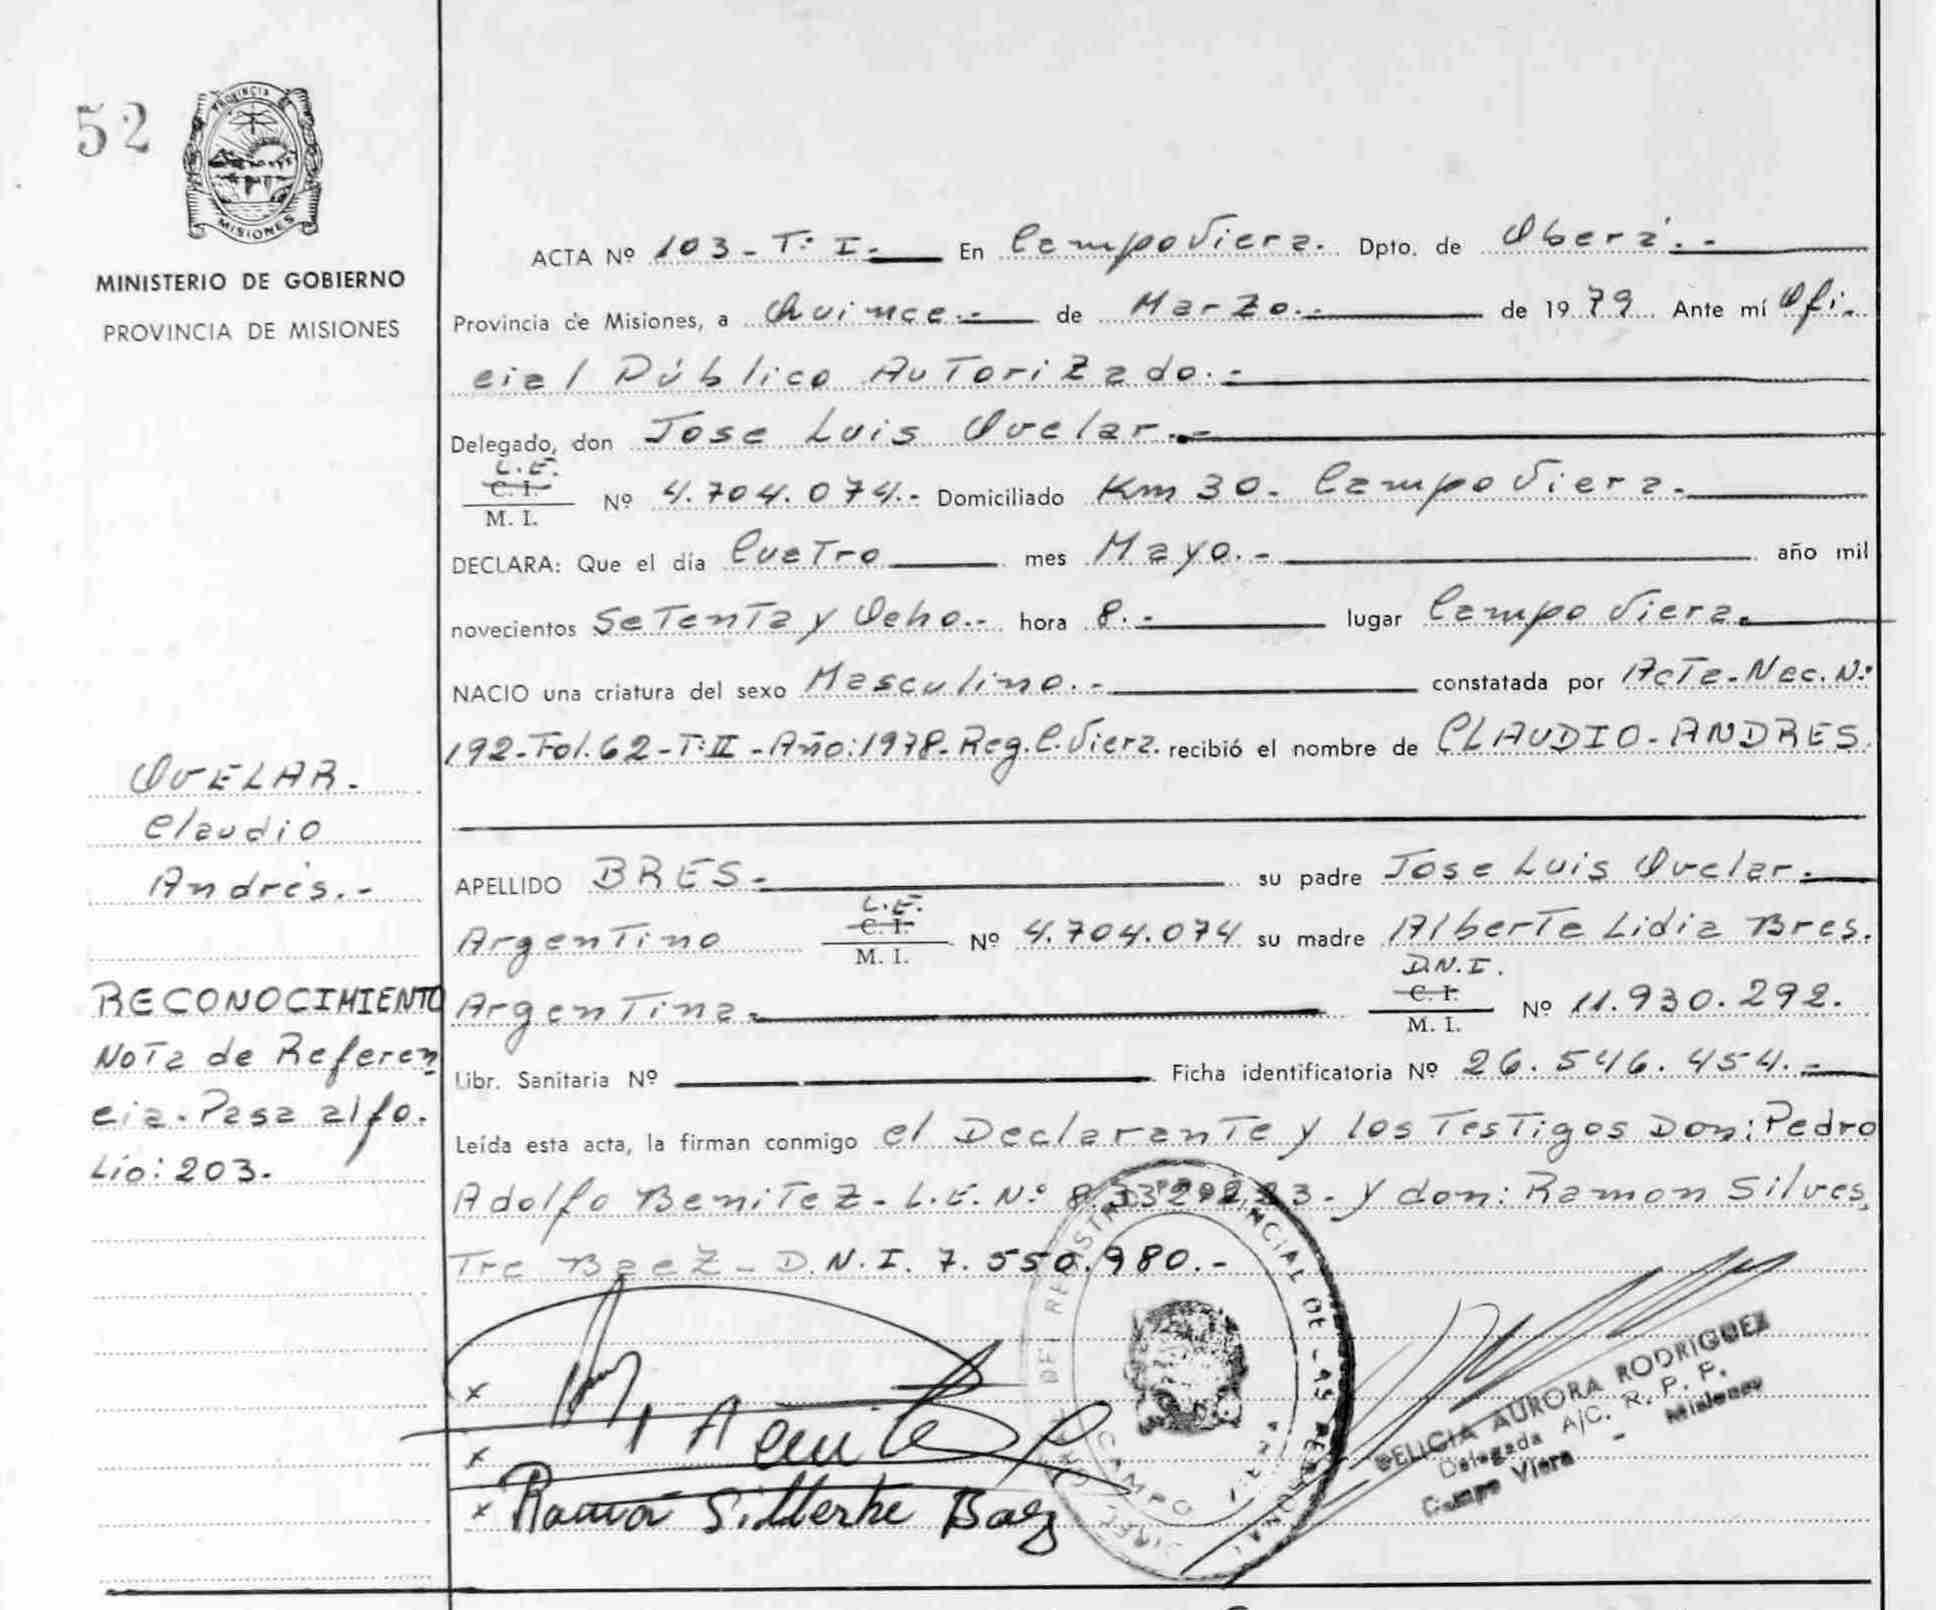 52
PROVINCIA
MISIONES
MINISTERIO DE GOBIERNO
PROVINCIA DE MISIONES
OVELAR.-
Claudio
Andrés.-
RECONOCIMIENTO
Nota de Referen
cia-Pasa al fo.
Lio: 203.-
ACTA Nº 103-Tº I.- En Campo Viera. Dpto. de Oberá.-
Provincia de Misiones, a Quince.- de Marzo.- de 1979 Ante mí Ofi-
cial Público Autorizado.-
Delegado, don Jose Luis Ovelar.-
L.E.
C. I.
M. I. Nº 4.704.074.- Domiciliado Km 30. Campo Viera.-
DECLARA: Que el día Cuatro mes Mayo.- año mil
novecientos Setenta y Ocho.- hora 8.- lugar Campo Viera.
NACIO una criatura del sexo Masculino.- constatada por Acta-Nac. Nº
192-Fol.62-T:II-Año:1978-Reg.C.Viera. recibió el nombre de CLAUDIO-ANDRES.
APELLIDO BRES- su padre Jose Luis Ovelar.-
Argentino L.E. C. I. M. I. Nº 4.704.074 su madre Alberta Lidia Bres.
Argentina- D.N.I. C. I. M. I. Nº 11.930.292.
Libr. Sanitaria Nº Ficha identificatoria Nº 26.546.454.-
Leída esta acta, la firman conmigo el Declarante y los Testigos Don: Pedro
Adolfo Benitez-L.E.Nº y don: Ramon Silves
Tre Baez-D.N.I. 7.550.980.-
x
x
x Ramon Baez
PROVINCIAL DE LAS PERSONAS
CAMPO VIERA
DELICIA AURORA RODRIGUEZ
Delegada A/C. R. P. P.
Campo Viera - Misiones